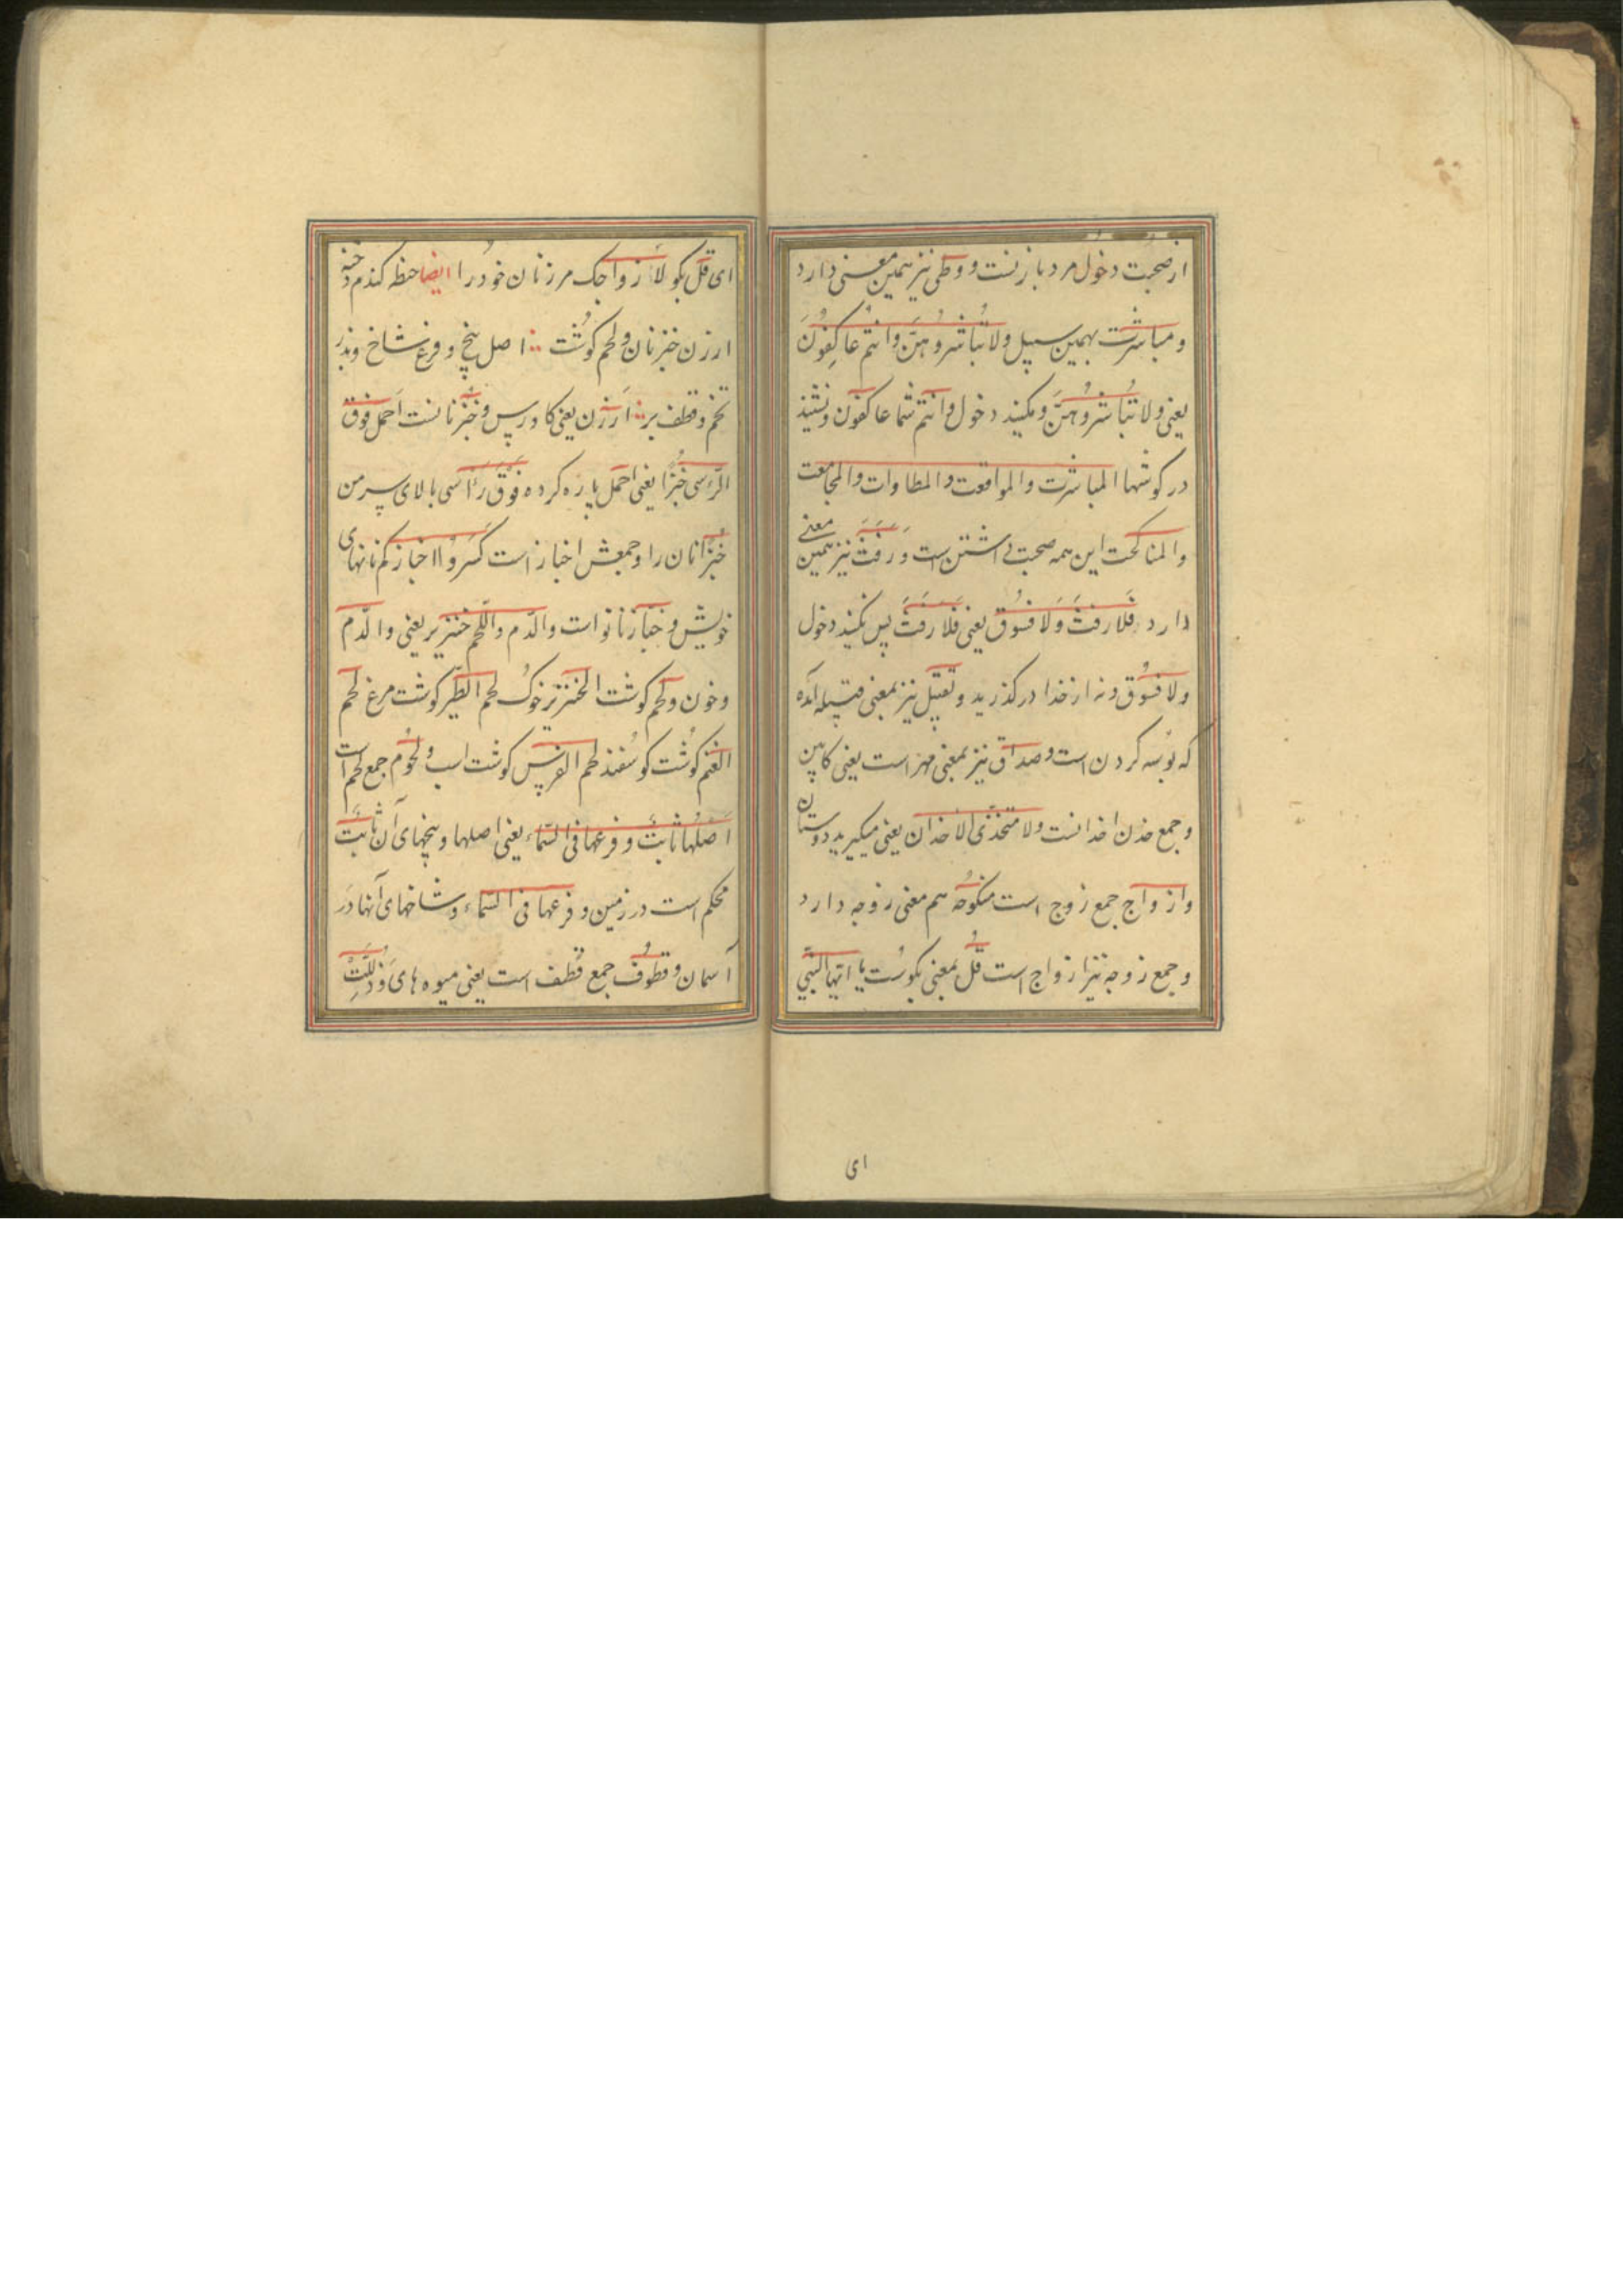 از صحبت دخول مرد باز نست و وطی نیز همین معنی دارد
و مباشرت بهمین سبیل ولا تُباشروهُنّ وانتم عاکِفُونَ
یعنی ولا تُباشروهُنَّ و مکنید دخول وانتم شما عاکفون ونشتید
در کوشها المباشرت والمواقعت والمطاوات والمجامعت
والمناکحت این همه صحبت داشتن است وَرَفَثَ نیز همین معنی
دارد فَلا رَفَثَ وَلا فُسُوق یعنی فَلا رَفَثَ پس نکنید دخول
ولا فسُوق و نه از خدا در کذرید و تقبیل نیز بمعنی قبیله آمده
که بوسه کردن است و صداق نیز بمعنی مهر است یعنی کابین
و جمع خدن اخدانست ولا متخذی الاخدان یعنی میکیرید دوستان
وازواج جمع زوج است منکوحُه هم معنی زوجه دارد
و جمع زوجه نیز ازواج است قُل بمعنی بکوست یا ایّها النبیّ
ای
ای قل بکو لأزواجک مر زنان خود را ایضا حنطه کندم دخنه
ارزن خبز نان و لحم کوشت اصل بیخ و فرع شاخ و بذر
تخم و قطف بر ارزن یعنی کاورس و خُبز نانست اَحمل فوق
الرّسی خُبزًا یعنی احمل پاره کرده فَوْقَ رَأسی بالای سر من
خُبزًا نان را و جمعش اخباز است کَسَروُا اخبازکم نانهای
خویش و خبّاز نانواست والدّم واللّحم خنزیر یعنی والدّم
و خون ولحم کوشت الخنزیر خوک لحم الطّیر کوشت مرغ لحم
الغنم کوشت کوسفند لحم الفرس کوشت اسب ولحُوم جمع لحم است
اَصْلُها ثابتٌ وفرعها فی السّماء یعنی اصلها و بیخهای آن ثابتٌ
محکم است در زمین وفرعها فی السّماء و شاخهای آنها در
آسمان وقطُوف جمع قطف است یعنی میوه های وَذُلِّلَتْ